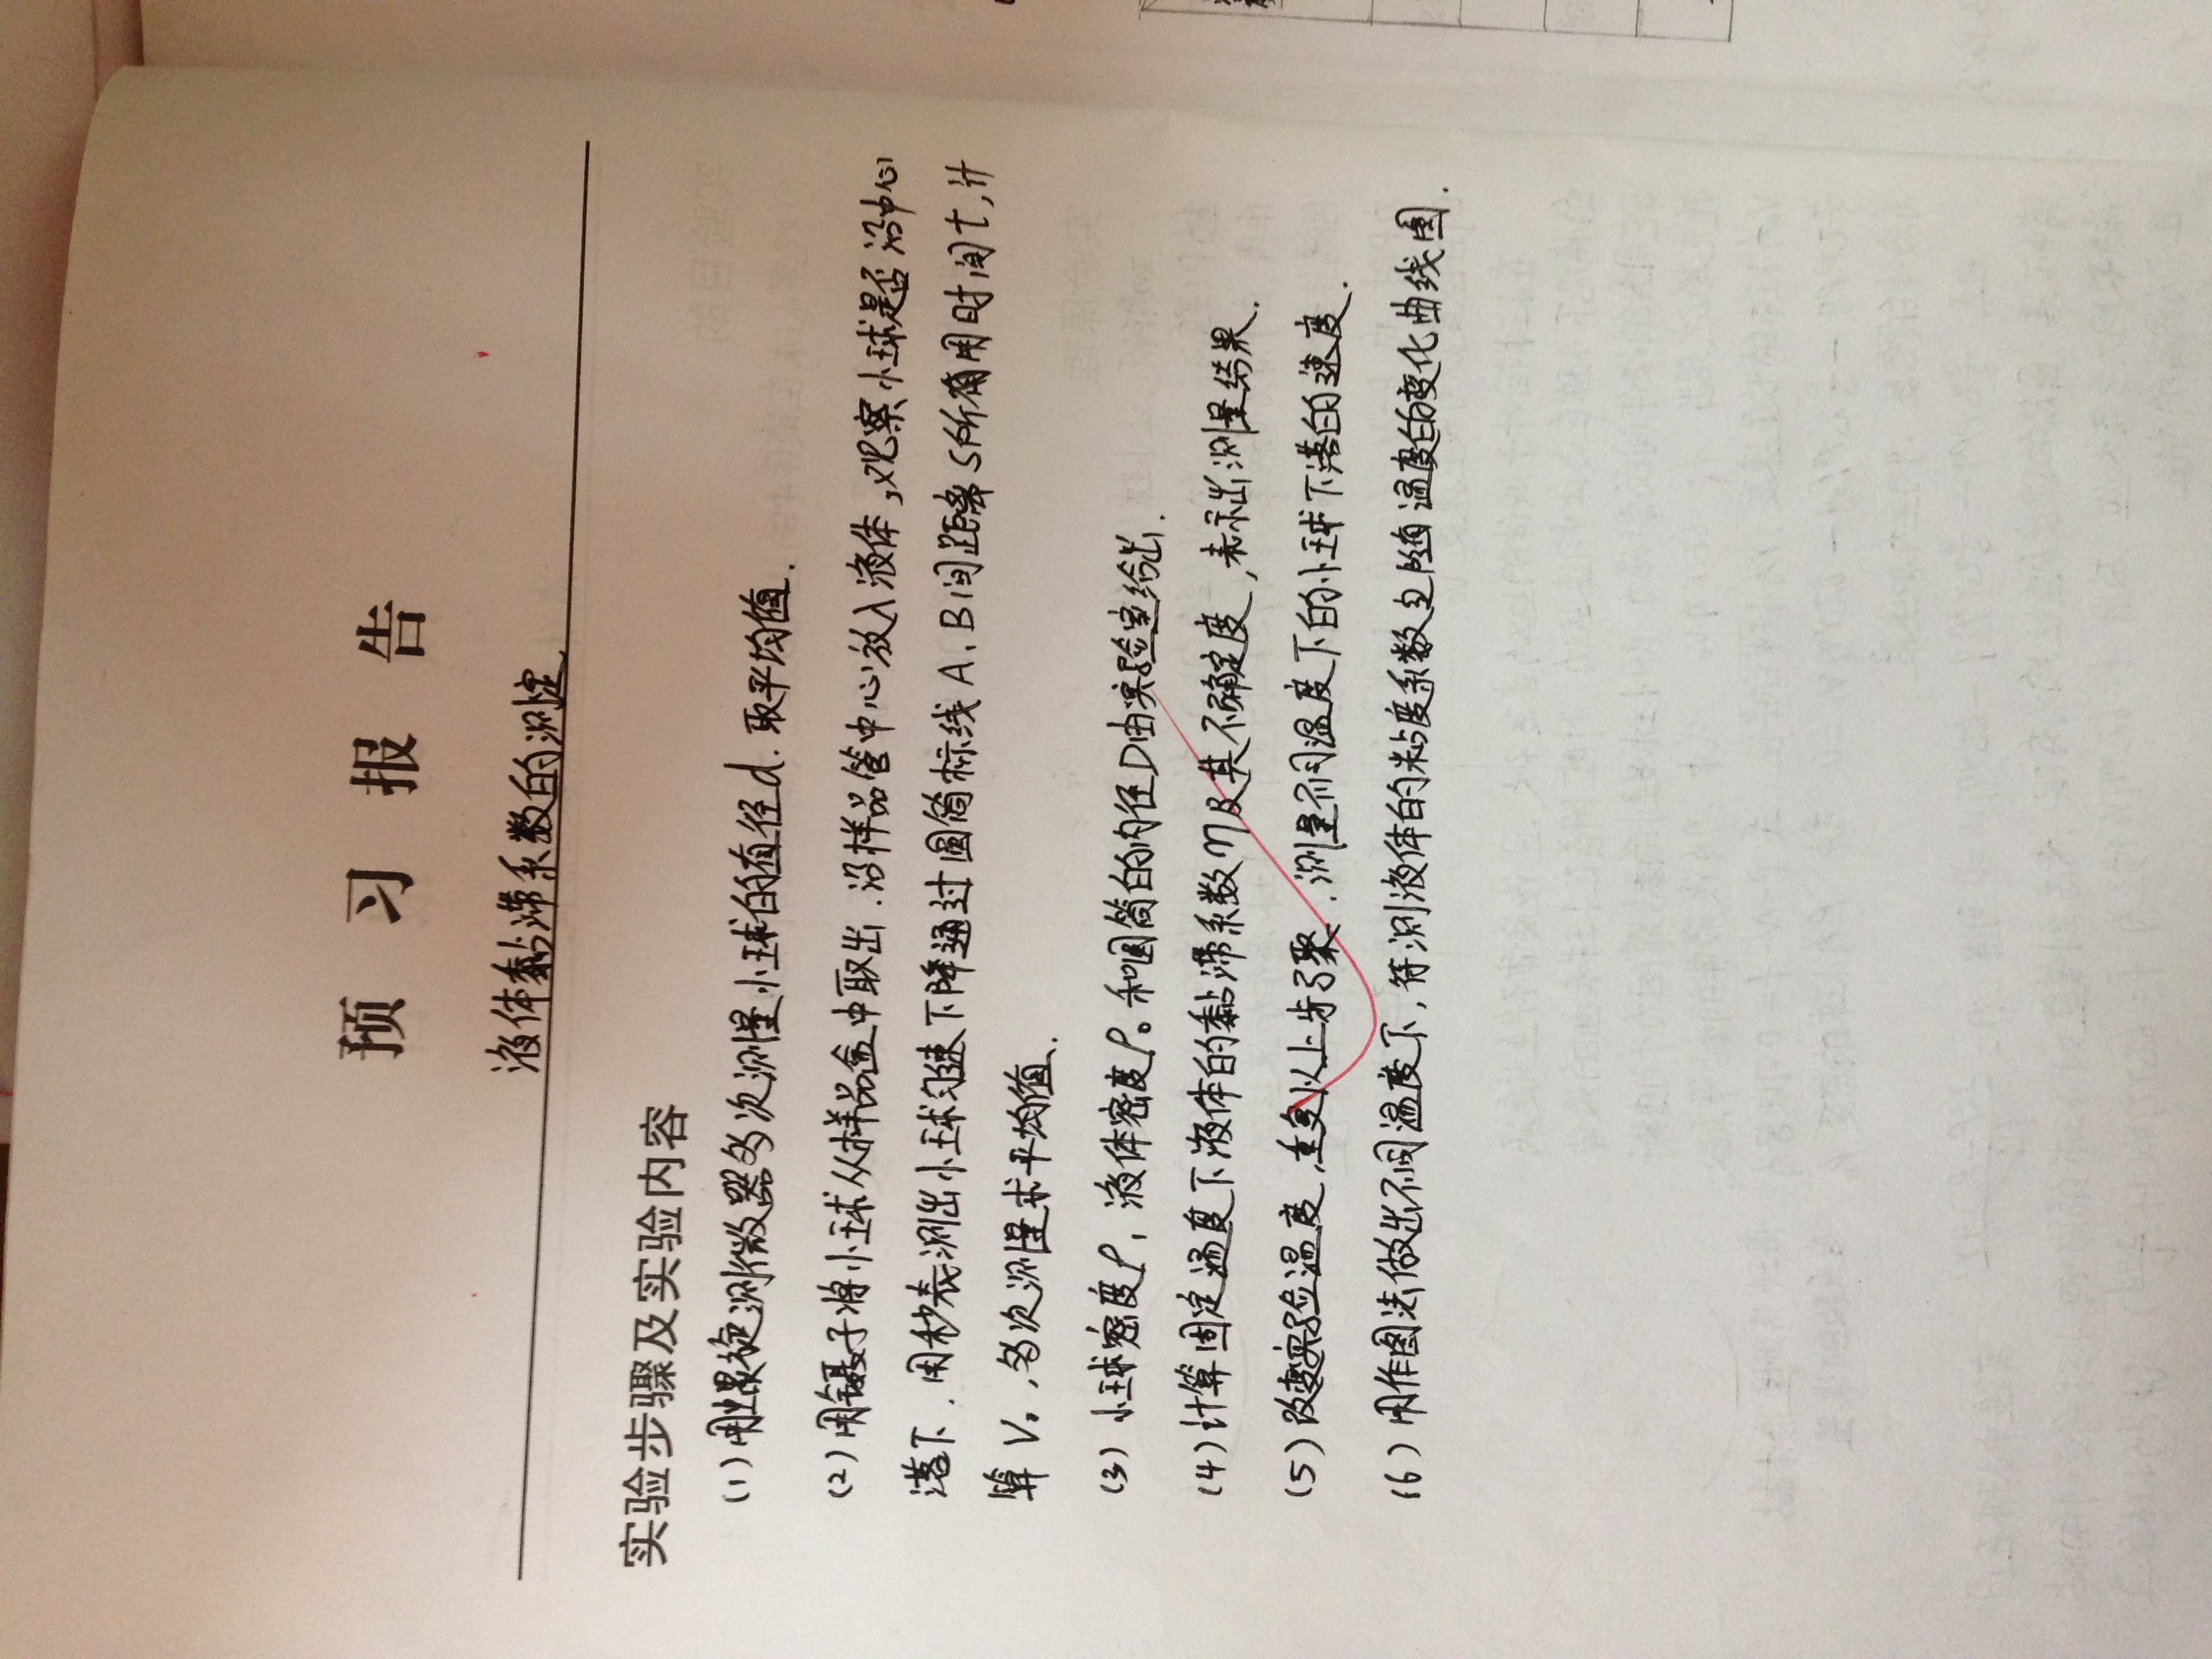 预习报告
液体黏滞系数的测定
实验步骤及实验内容
(1)用螺旋测微器多次测量小球的直径d.取平均值.
(2)用镊子将小球从样品盒中取出.沿样品管中心放入液体,观察小球是否沿中心
落下.用秒表测出小球匀速下降通过圆筒标线A、B间距离S所需用时间t,计
算V₀,多次测量求平均值.
(3)小球密度ρ,液体密度ρ₀和圆筒的内径D由实验室给出.
(4)计算固定温度下液体的黏滞系数η及其不确定度,表示出测量结果.
(5)改变实验温度,重复以上步骤.测量不同温度下的小球下落的速度.
(6)用作图法做出不同温度下,待测液体的粘度系数与随温度的变化曲线图.